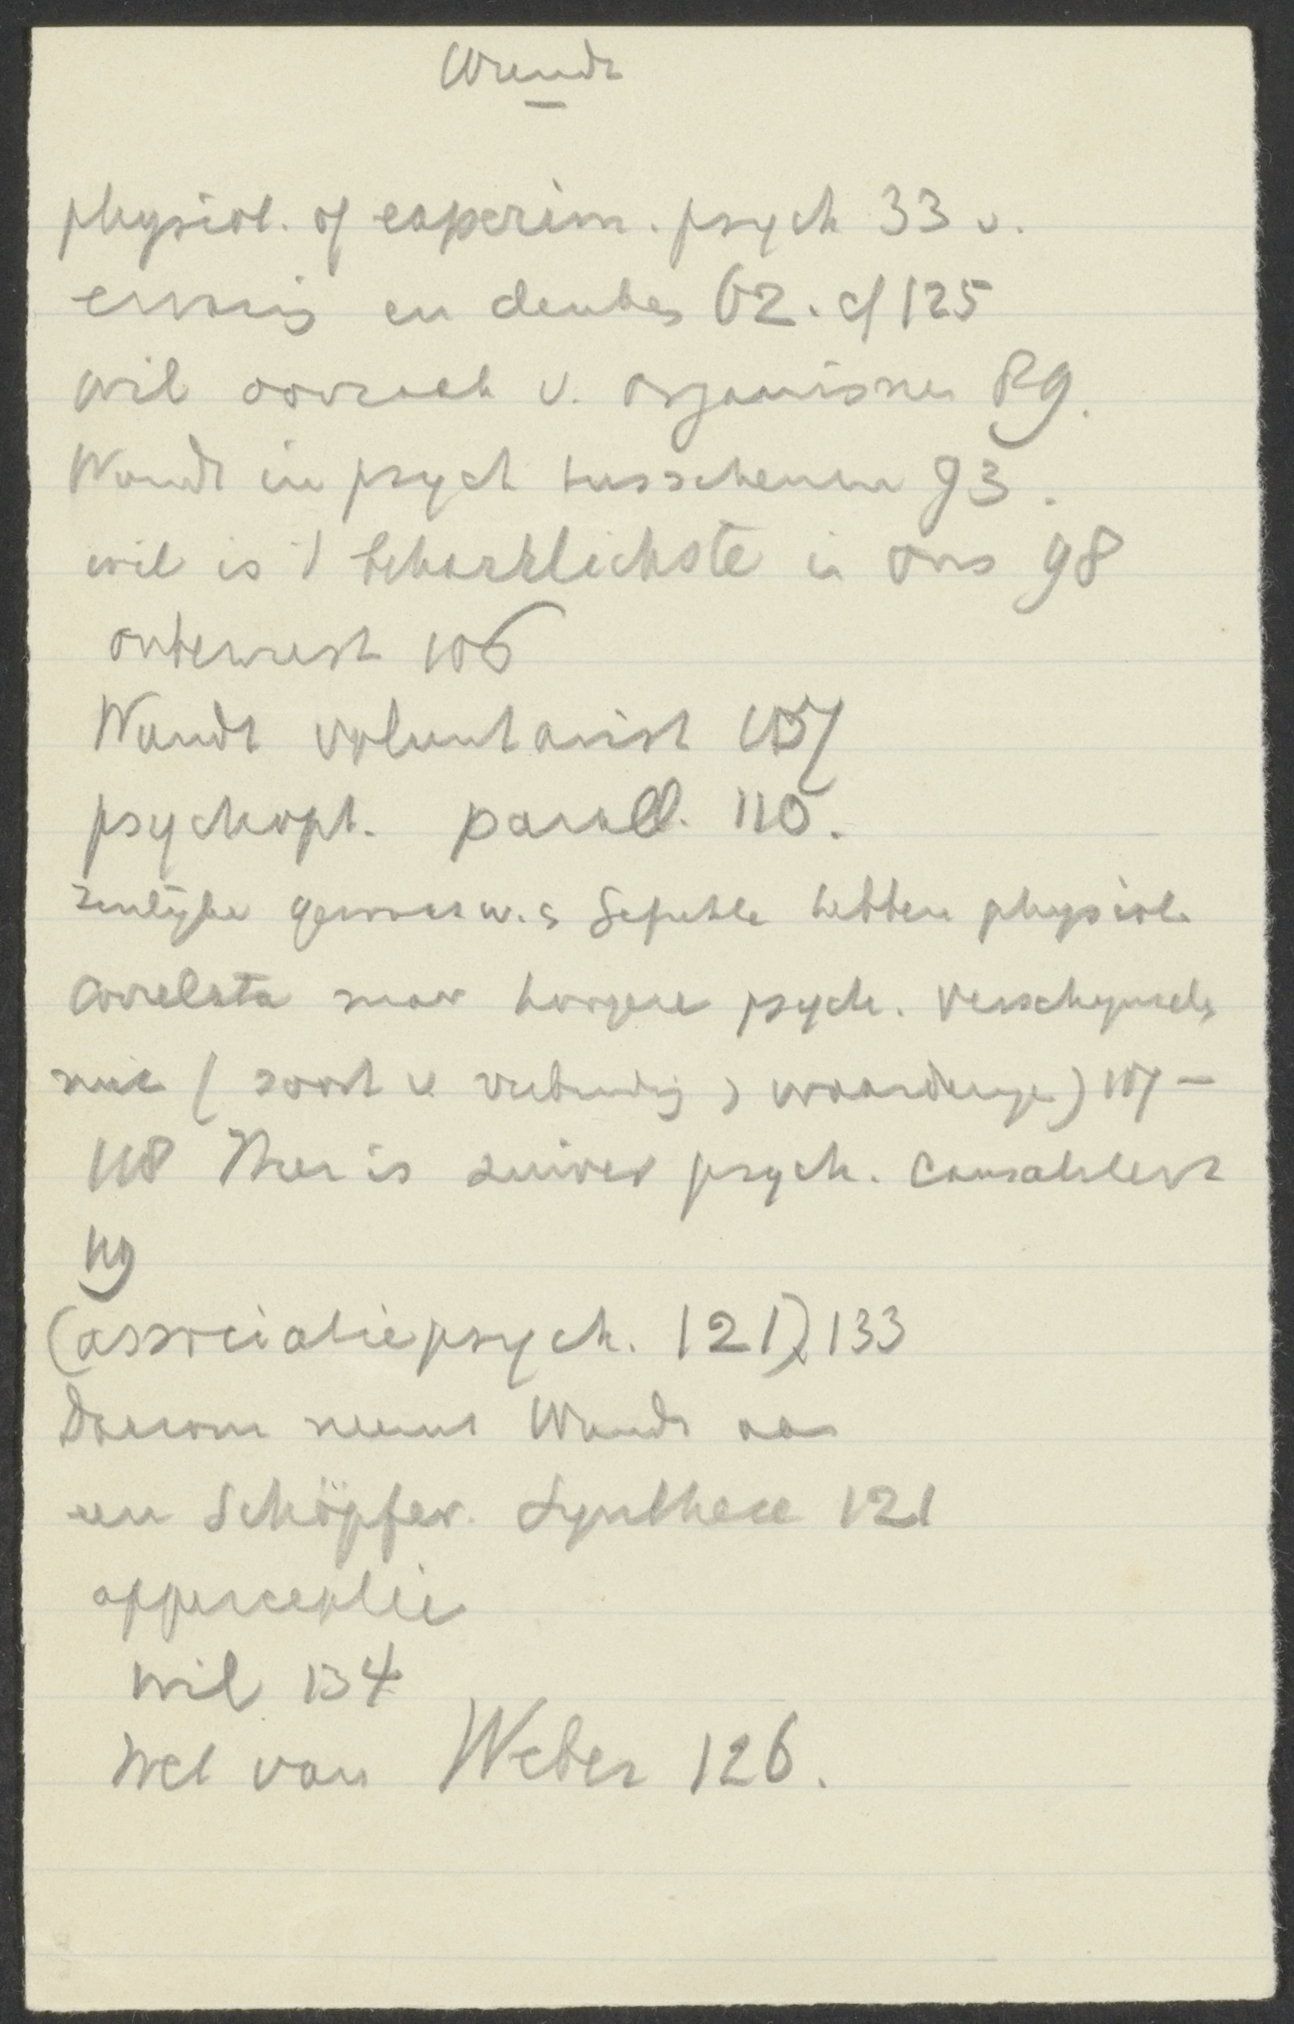 Wundt
physiol. of experim. psych 33 v.
en denken 62. cf 125
wil oorzaak v. organismen 89.
Wundt in psych tusschenin 93.
wil is 't beharrlichste in ons 98
onbewust 106
Wundt voluntarist 107
psychoph. parall. 110.
zinlijke gewaarw. Gefühle hebben physiol.
correlata maar hoogere psych. verschijnsels
niet (soort v verbinding, waardeeringe) 117 –
118 Hier is zuiver psych. causaliteit
119
(associatiepsych. 121), 133
Daarom neemt Wundt aan
een Schöpfer. Synthese 121
apperceptie
wil 134
Wet van Weber 126.